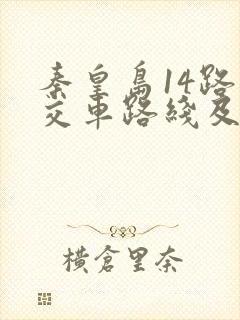 秦皇島14路
交車路綫及
橫倉里奈